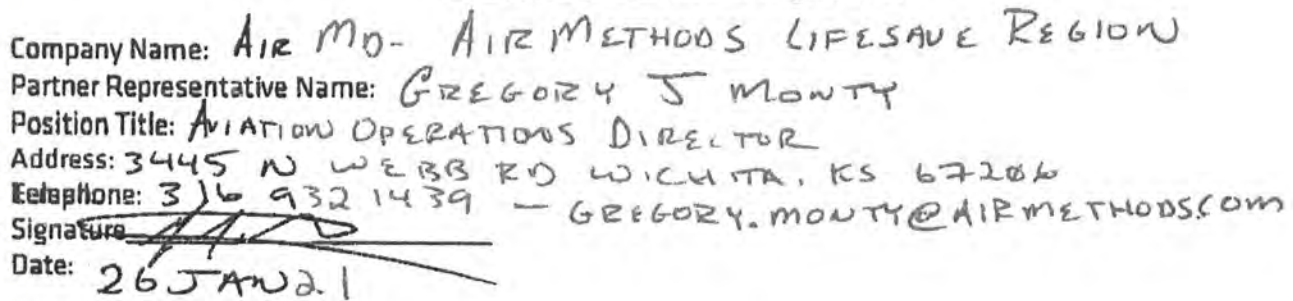 Company Name: AIR MD- AIR METHODS LIFESAVE REGION
Partner Representative Name: GREGORY J MONTY
Position Title: AVIATION OPERATIONS DIRECTOR
Address: 3445 N WEBB RD WICHITA, KS 67206
316 932 1439 - GREGORY.MONTY@AIRMETHODS.COM
Signature
Date: 26 JAN 21